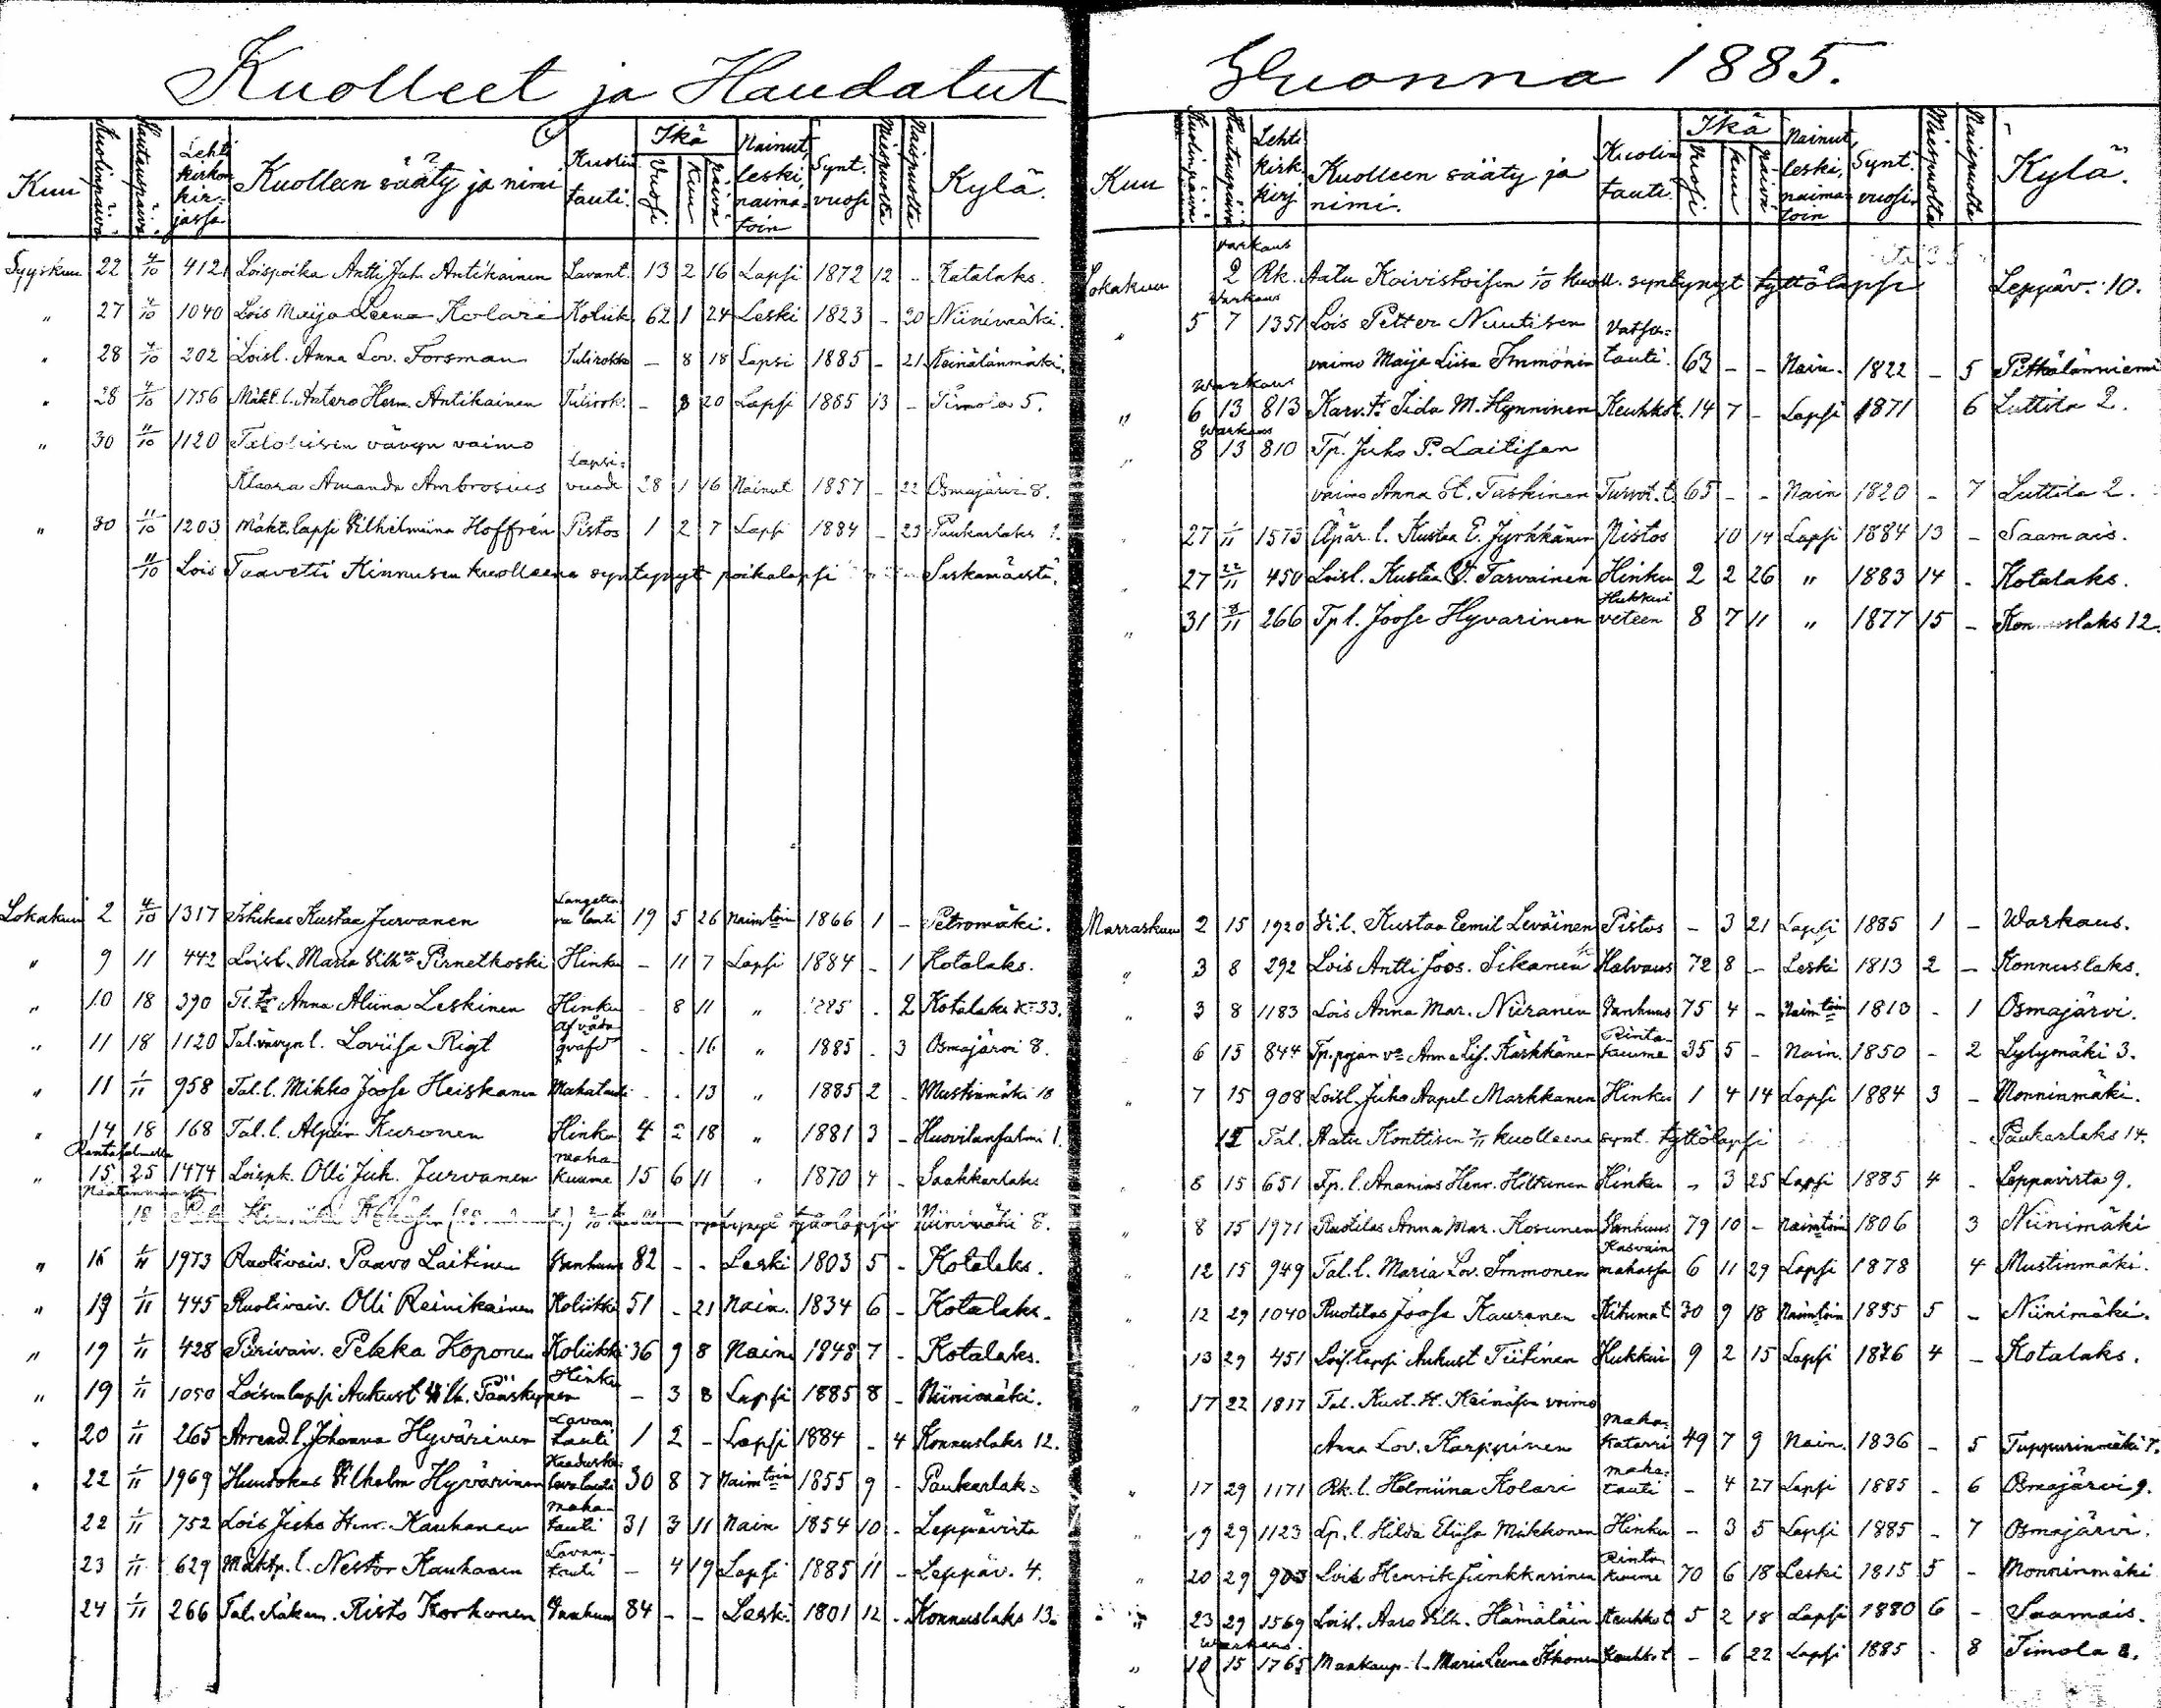 Kuolleet ja Haudatut
Kuu Kuolinpäivä. Hautauspäivä. Lehti kirkonkirjassa. Kuolleen sääty ja nimi Kuolin tauti. Ikä Vuosi Kuu Päivä Nainut, leski, naimatoin Synt. vuosi Miespuolta Naispuolta Kylä.
Syyskuu 22 4/10 412 Loispoika Antti Juh. Antikainen Lavant. 13 2 16 Lapsi 1872 12 - Kotalaks.
" 27 4/10 1040 Lois Maija Leena Kolari Koliik. 62 1 24 Leski 1823 - 20 Niinimäki.
" 28 4/10 202 Loisl. Anna Lov. Forsman Tulirokko - 8 18 Lapsi 1885 - 21 Keinälänmäki.
" 28 4/10 1756 Mäkt. l. Antero Herm. Antikainen Tulirok. - 8 20 Lapsi 1885 13 - Timola 5.
" 30 11/10 1120 Talollisen vävyn vaimo
Klaara Amanda Ambrosius Lapsi-vuode 28 1 16 Nainut 1857 - 22 Osmajärvi 8.
" 30 11/10 1203 Mäkt. lapsi Vilhelmiina Hoffrén Pistos 1 2 7 Lapsi 1884 - 23 Paukarlaks 1.
11/10 Lois Taavetti Kinnusen kuolleena syntynyt poikalapsi Saskamäestä.
Lokakuu 2 4/10 1317 Itsikas Kustaa Jurvanen Langettava tauti 19 5 26 Naimtoin 1866 1 - Petromäki.
" 9 11 442 Loisl. Maria Vilh. Pirnetkoski Hinku - 11 7 Lapsi 1884 - 1 Kotalaks.
" 10 18 390 Tl. tr Anna Aliina Leskinen Hinku - 8 11 " 1885 - 2 Kotalaks K= 33.
" 11 18 1120 Tal. vävyn l. Loviisa Rigt - - 16 " 1885 - 3 Osmajärvi 8.
" 11 1/11 958 Tal. l. Mikko Joose Heiskanen Mahatauti - - 13 " 1885 2 - Mustinmäki 18
" 14 18 168 Tal. l. Alpin Kuronen Hinku 4 2 18 " 1881 3 - Huovilansalmi 1.
Rantasalmella
" 15 25 1474 Loispk. Olli Juh. Jurvanen mahakuume 15 6 11 " 1870 4 - Saahkarlaks
18 Niinimäki 8.
" 16 1/11 1973 Ruotivaiv. Paavo Laitinen Vanhuus 82 - - Leski 1803 5 - Kotalaks.
" 19 1/11 445 Ruotivaiv. Olli Reinikainen Koliikki 51 - 21 Nain. 1834 6 - Kotalaks.
" 19 1/11 428 Päivaiv. Pekka Koponen Koliikki 36 9 8 Nain. 1848 7 - Kotalaks.
" 19 1/11 1050 Loisenlapsi Aukust Vilh. Pääskynen Hinku - 3 8 Lapsi 1885 8 - Niinimäki.
" 20 1/11 265 Arrend. l. Johanna Hyvärinen Lavantauti 1 2 - Lapsi 1884 - 4 Konnuslaks 12.
" 22 1/11 1969 Huutokas Vilhelm Hyvärinen 30 8 7 Naimtoin 1855 9 - Paukarlaks
22 1/11 752 Lois Juho Henr. Kauhanen mahatauti 31 3 11 Nain 1854 10 - Leppävirta
23 1/11 629 Mäktp. l. Nestor Kauhanen Lavantauti - 4 19 Lapsi 1885 11 - Leppäv. 4.
24 1/11 266 Tal. Risto Korhonen Vanhuus 84 - - Leski 1801 12 - Konnuslaks 13.
Vuonna 1885.
Kuu Kuolinpäivä Hautauspäivä Lehti kirk. kirj. Kuolleen sääty ja nimi. Kuolin tauti. Ikä Vuosi Kuu Päivä Nainut, leski, naimatoin Synt. vuosi. Miespuolta Naispuolta Kylä.
Warkaus
Lokakuu 2 Rk. Aatu Koivistoisen 1/10 kuoll. syntynyt tyttölapsi Leppäv. 10.
Warkaus
" 5 7 1351 Lois Petter Nuutisen
vaimo Maija Liisa Immonen Vatsatauti. 63 - - Nain. 1822 - 5 Pitkälänniemi
Warkaus
" 6 13 813 Karv. tr Iida M. Hynninen Keuhkot. 14 7 - Lapsi 1871 6 Luttila 2.
Warkaus
" 8 13 810 Tp. Juho P. Laitisen
vaimo Anna St. Taskinen Turvot. t. 65 - - Nain 1820 - 7 Luttila 2.
" 27 1/11 1573 Äpär. l. Kustaa E. Jyrhkänen Pistos 10 14 Lapsi 1884 13 - Saamais.
" 27 22/11 450 Loisl. Kustaa V. Tarvainen Hinku 2 2 26 " 1883 14 - Kotalaks.
" 31 8/11 266 Tp l. Joose Hyvarinen Hukkui veteen 8 7 11 " 1877 15 - Konnuslaks 12.
Marraskuu 2 15 1920 Vi. l. Kustaa Eemil Leväinen Pistos - 3 21 Lapsi 1885 1 - Warkaus.
" 3 8 292 Lois Antti Joos. Sikanen Halvaus 72 8 - Leski 1813 2 - Konnuslaks.
" 3 8 1183 Lois Anna Mar. Niiranen Vanhuus 75 4 - Naimtoin 1810 - 1 Osmajärvi.
" 6 15 844 Tp. pojan va Anna Lis. Kärkkänen Rintakuume 35 5 - Nain. 1850 - 2 Lylymäki 3.
" 7 15 908 Loisl. Juho Aapel Markkanen Hinku 1 4 14 Lapsi 1884 3 - Monninmäki.
15 Tal. Aatu Konttisen 7/11 kuolleena synt. tyttölapsi - Paukarlaks 14.
" 8 15 651 Tp. l. Ananias Henr. Hiltunen Hinku - 3 25 Lapsi 1885 4 - Leppavirta 9.
" 8 15 1971 Ruotilas Anna Mar. Kosunen Vanhuus 79 10 - Naimtoin 1806 3 Niinimäki
" 12 15 949 Tal. l. Maria Lov. Immonen Kasvain mahassa 6 11 29 Lapsi 1878 4 Mustinmäki.
" 12 29 1040 Ruotilas Joose Kauranen Kitumat. 30 9 18 Naimtoin 1855 5 - Niinimäki.
" 13 29 451 Lois lapsi Aukust Tiitinen Hukkui 9 2 15 Lapsi 1876 4 - Kotalaks.
" 17 22 1817 Tal. Kust. H. Heinäsen vaimo
Anna Lov. Karppinen Mahakatarri 49 7 9 Nain. 1836 - 5 Tuppurinmäki 7.
" 17 29 1171 Rk. l. Helmiina Kolari mahatauti - 4 27 Lapsi 1885 - 6 Osmajärvi 9.
" 19 29 1123 Lp. l. Hilda Eliisa Mikkonen Hinku - 3 5 Lapsi 1885 - 7 Osmajärvi.
" 20 29 903 Lois Henrik Junkkarinen Rintakuume 70 6 18 Leski 1815 5 - Monninmäki
" 23 29 1569 Loisl. Aaro Vilh. Hämäläin Keuhkot 5 2 18 Lapsi 1880 6 - Saamais.
Warkaus.
" 10 15 1765 Maakaup. l. Maria Leena Itkonen Keuhkot - 6 22 Lapsi 1885 - 8 Timola 2.